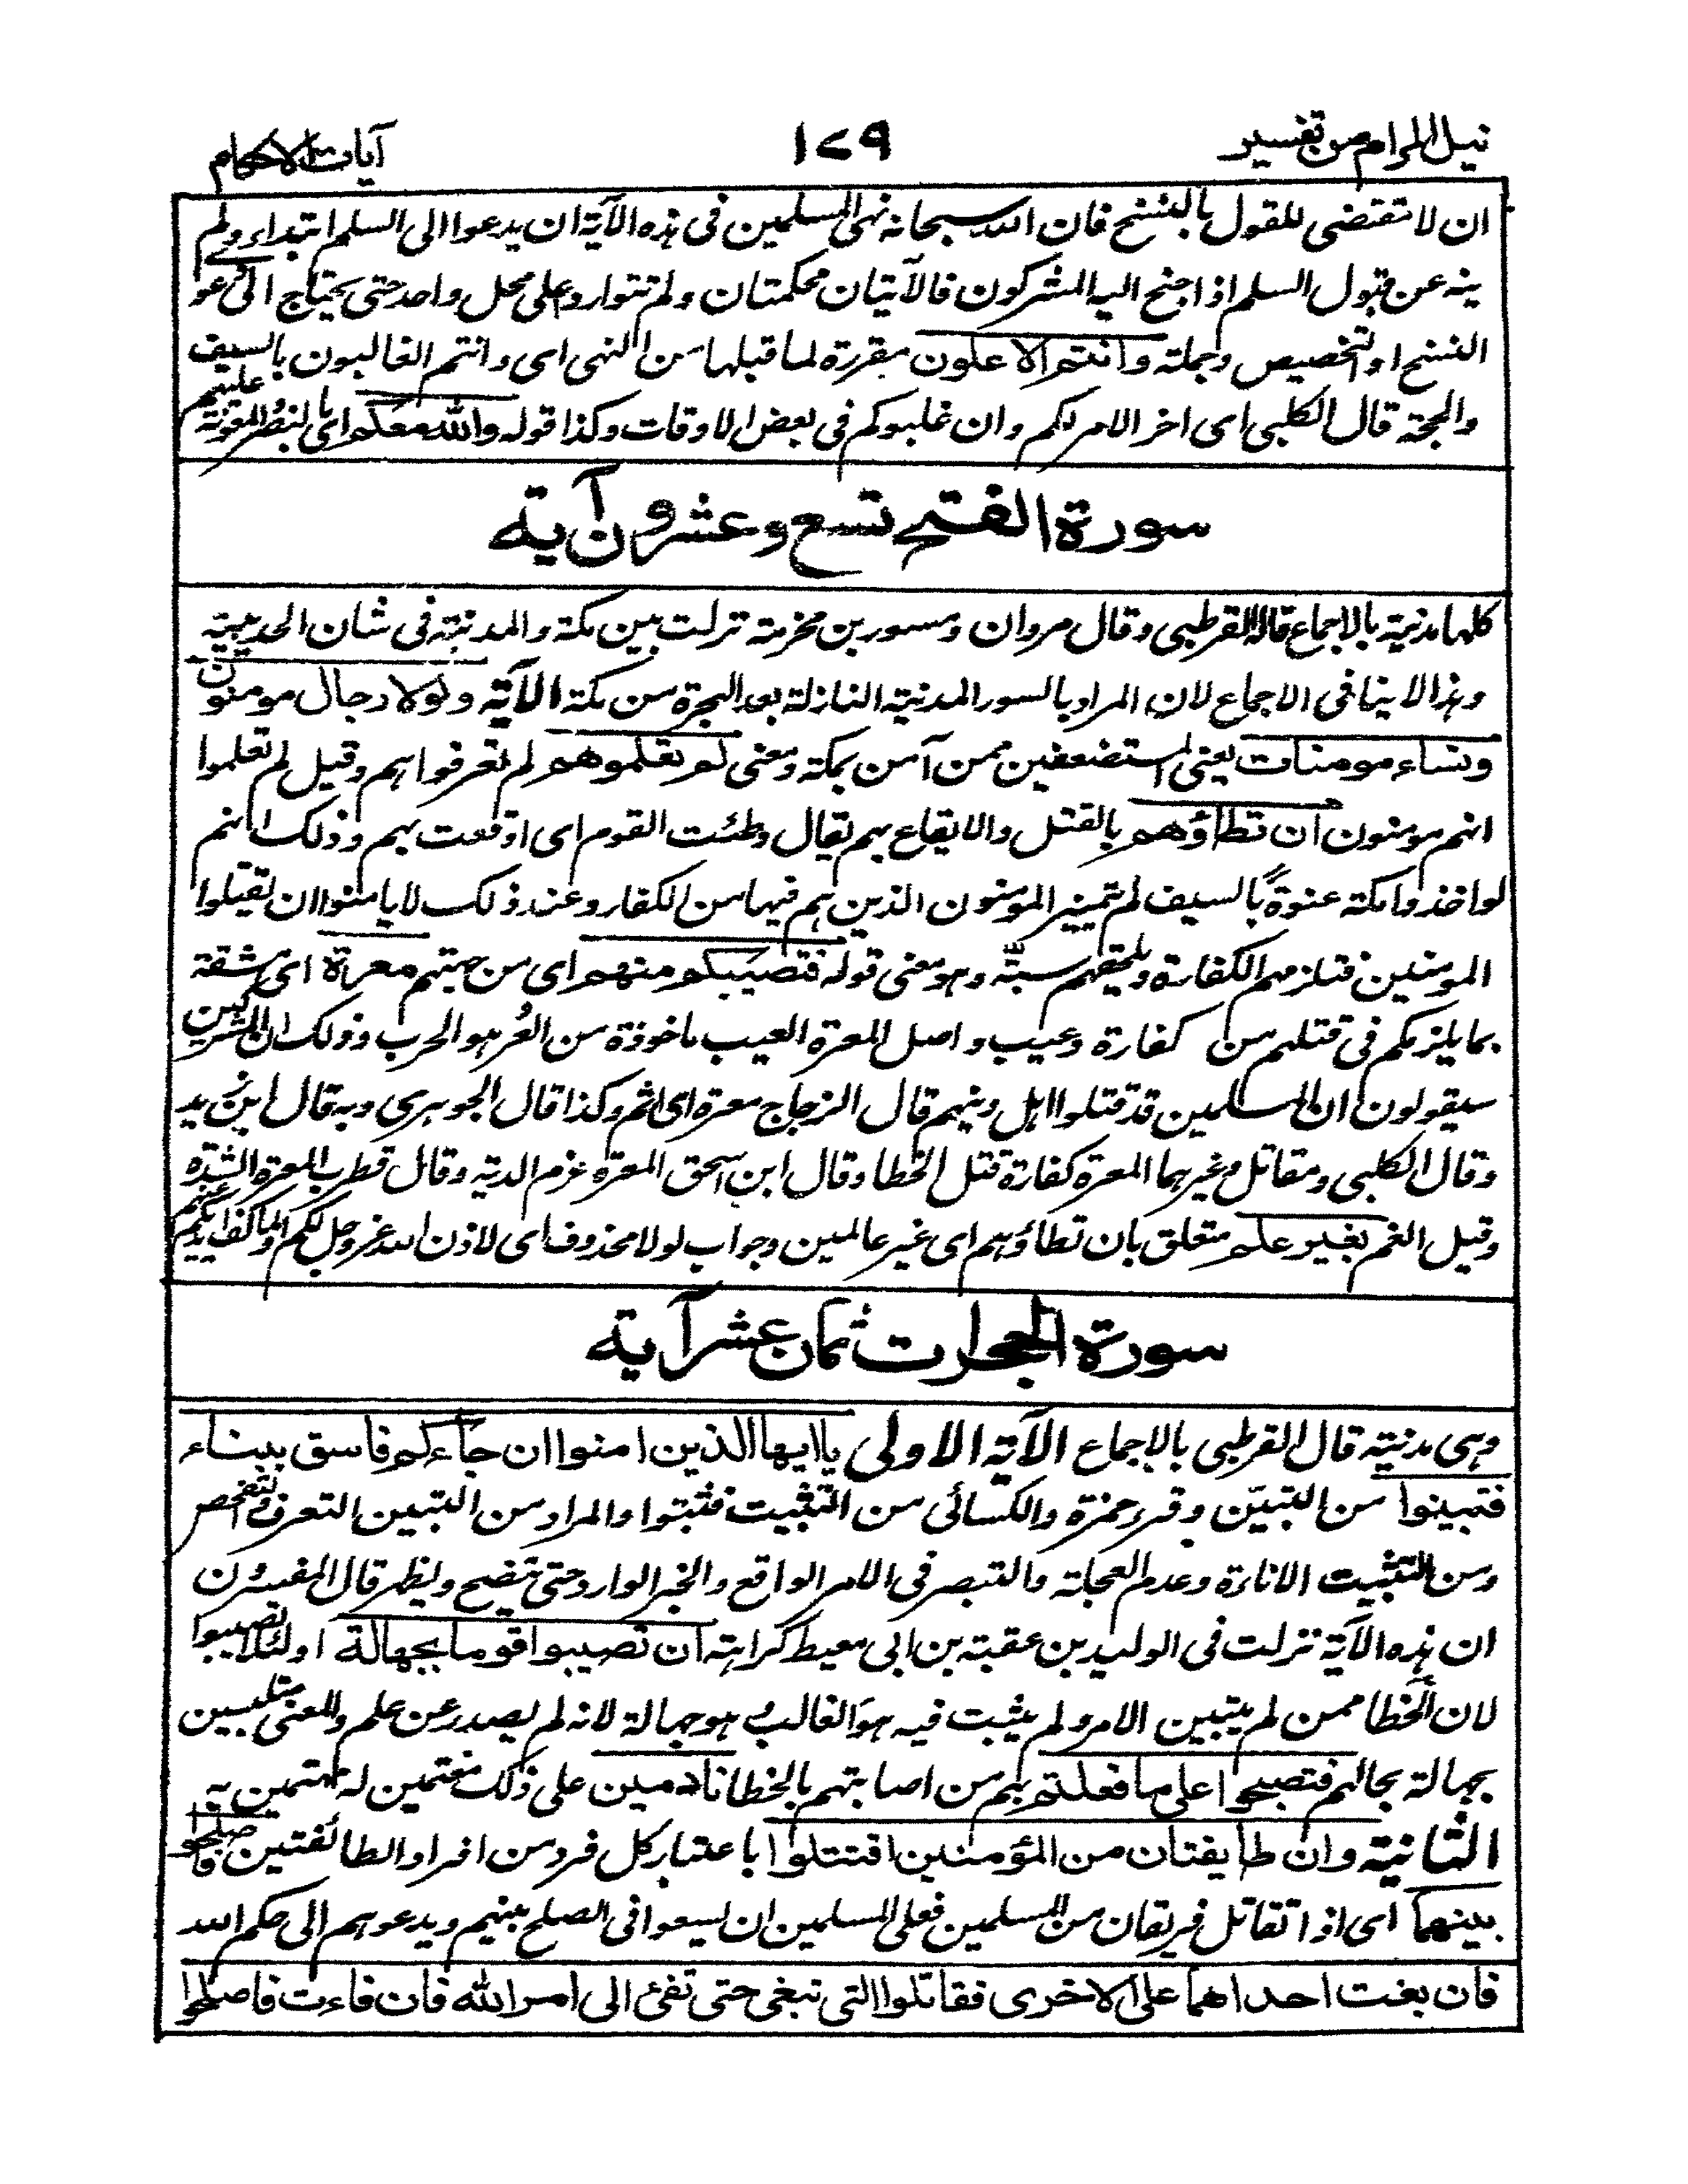 نيل المرام من تفسير ١٢٩ آيات الاحكام
ان لا تقتضى للقول بالنسخ فان الله سبحانه نهى المسلمين فى هذه الآية ان يدعوا الى السلم ابتداء ولم
ينه عن قبول السلم اذا جنح اليه المشركون فالآيتان محكمتان ولم تتواردا على محل واحد حتى يحتاج الى دعو
النسخ او التخصيص وجملة وانتم الاعلون مقررة لما قبلها من النهى اى وانتم الغالبون بالسيف
والحجة قال الكلبى اى اخر الامر لكم وان غلبوكم فى بعض الاوقات وكذا قوله والله معكم اى بالنصر والمعونة عليهم
سورة الفتح تسع وعشرون آية
كلها مدنية بالاجماع قاله القرطبى وقال مروان ومسور بن مخرمة نزلت بين مكة والمدينة فى شان الحديبية
وهذا لا ينافى الاجماع لان المراد بالسور المدنية النازلة بعد الهجرة من مكة الآية ولولا رجال مومنون
ونساء مومنات يعنى المستضعفين ممن آمن بمكة ومعنى لم تعلموهم لم تعرفوا هم وقيل لم تعلموا
انهم مومنون ان تطاؤهم بالقتل والايقاع بهم يقال وطئت القوم اى اوقعت بهم وذلك انهم
لو اخذوا مكة عنوة بالسيف لم تميز المومنون الذين هم فيها من الكفار وعند ذلك لا يامنوا ان يقتلوا
المومنين فتلزمهم الكفارة ويلحقهم سبة وهو معنى قوله فتصيبكم منهم اى من جهتهم معرة اى مشقة
بما يلزمكم فى قتلهم من كفارة وعيب واصل المعرة العيب ماخوذة من العر هو الجرب وذلك ان المشركين
سيقولون ان المسلمين قد قتلوا اهل دينهم قال الزجاج معرة اى اثم وكذا قال الجوهرى وبه قال ابن زيد
وقال الكلبى ومقاتل وغيرهما المعرة كفارة قتل الخطا وقال ابن اسحق المعرة غرم الدية وقال قطرب المعرة الشدة
وقيل الغم بغير علم متعلق بان تطاؤهم اى غير عالمين وجواب لولا محذوف اى لاذن الله عز وجل لكم او لما كف ايديكم عنهم
سورة الحجرات ثمان عشر آية
وهى مدنية قال القرطبى بالاجماع الآية الاولى يا ايها الذين امنوا ان جاءكم فاسق بنباء
فتبينوا من التبين وقرء حمزة والكسائى من التثبيت فثبتوا والمراد من التبين التعرف والتفحص
ومن التثبيت الاناءة وعدم العجلة والتبصر فى الامر الواقع والخبر الوارد حتى يتضح ويظهر قال المفسرن
ان هذه الآية نزلت فى الوليد بن عقبة بن ابى معيط كراهة ان تصيبوا قوما بجهالة او لئلا تصيبوا
لان الخطا ممن لم يتبين الامر ولم يثبت فيه هو الغالب هو جهالة لانه لم يصدر عن علم والمعنى متلبسين
بجهالة بحالهم فتصبحوا على ما فعلتم بهم من اصابتهم بالخطا نادمين على ذلك مغتمين له مهتمين به
الثانية وان طايفتان من المؤمنين اقتتلوا باعتبار كل فرد من افراد الطائفتين فاصلحوا
بينهما اى اذا تقاتل فريقان من المسلمين فعلى المسلمين ان يسعوا فى الصلح بينهم ويدعوهم الى حكم الله
فان بغت احداهما على الاخرى فقاتلوا التى تبغى حتى تفئ الى امر الله فان فاءت فاصلحوا